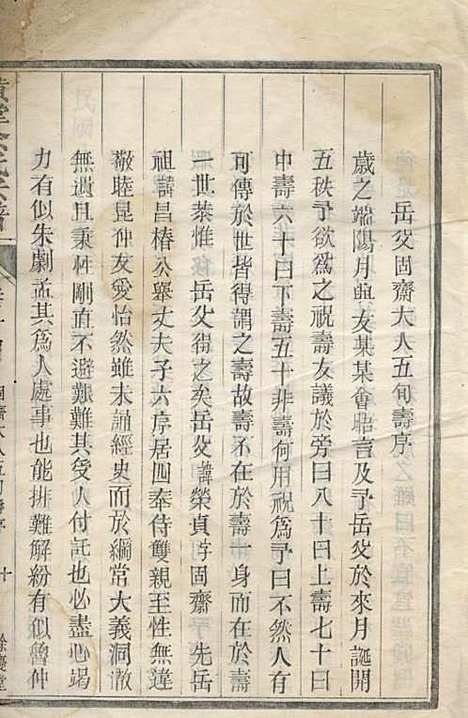 岳父固齋大人五旬壽序
歲之端陽月與友某某會貽言及予岳父於來月誕開
五秩予欲爲之祝壽友議於旁曰八十曰上壽七十曰
中壽六十曰下壽五十非壽何用祝爲予曰不然人有
可傳於世皆得謂之壽故不在於壽十身而在於壽
一世茶惟岳父得之矣岳父諱榮貞字固齋先岳
祖諱昌椿公舉丈夫子六序居四奉侍雙親至性無違
敬睦昆仲友愛怡然雖未誦經史而於綱常大義洞澈
無遺且秉性剛直不避艱難其受人付託也必盡心竭
力有似朱劇孟其爲人處事也能排難解紛有似魯仲
固齋大人五旬壽序
十
餘慶堂